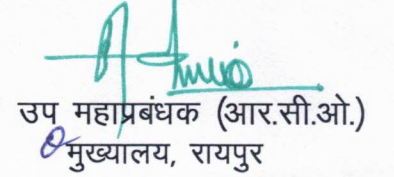 उप महाप्रबंधक (आर.सी.ओ.)
मुख्यालय, रायपुर